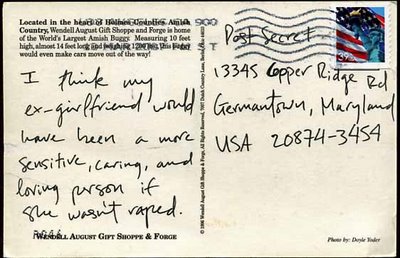 Located in the heart of Holmes Counties Amish
Country, Wendell August Gift Shoppe and Forge is home
of the World's Largest Amish Buggy. Measuring 10 feet
high, almost 14 feet long and weighing 1200 lbs., this Buggy
would even make cars move out of the way!
I think my
ex-girlfriend would
have been a more
sensitive, caring, and
loving person if
she wasn't raped.
WENDELL AUGUST GIFT SHOPPE & FORGE
© 1996 Wendell August Gift Shoppe & Forge, All Rights Reserved,
Post Secret
13345 Copper Ridge Rd
Germantown, Maryland
USA 20874-3454
37
Photo by: Doyle Yoder